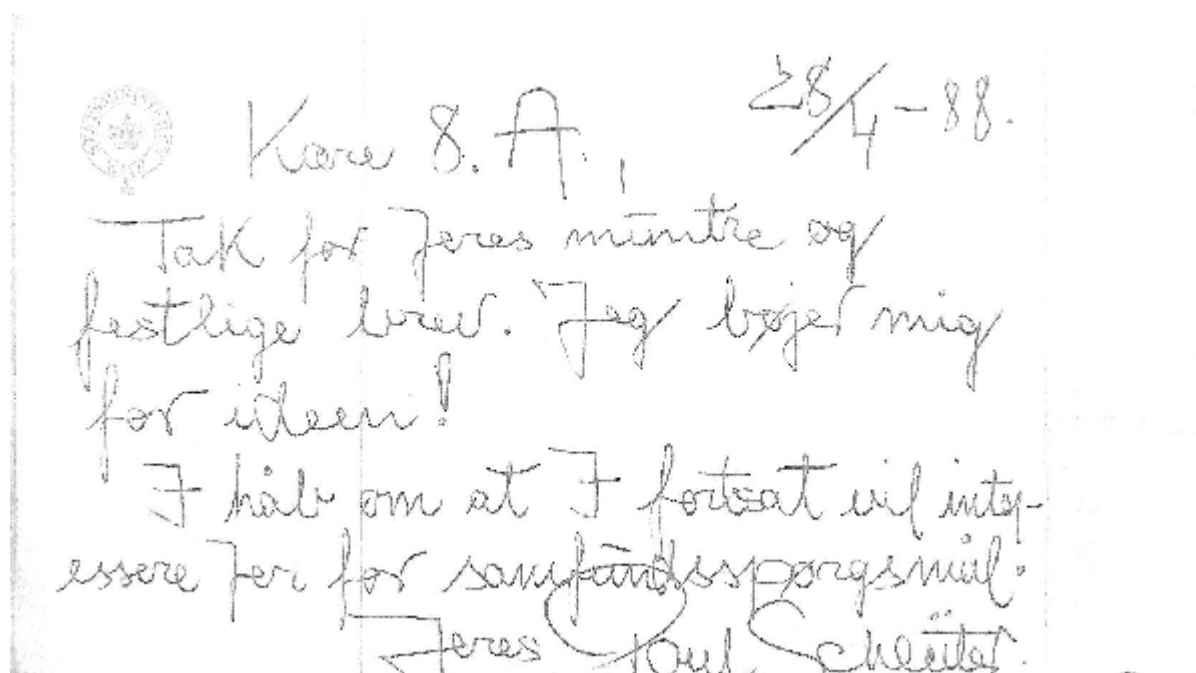 28/4-88.
Kære 8. A.,
Tak for Jeres muntre og
festlige brev. Jeg bøjer mig
for ideen!
I håb om at I fortsat vil inter-
essere Jer for samfundsspørgsmål.
Jeres Poul Schlüter.